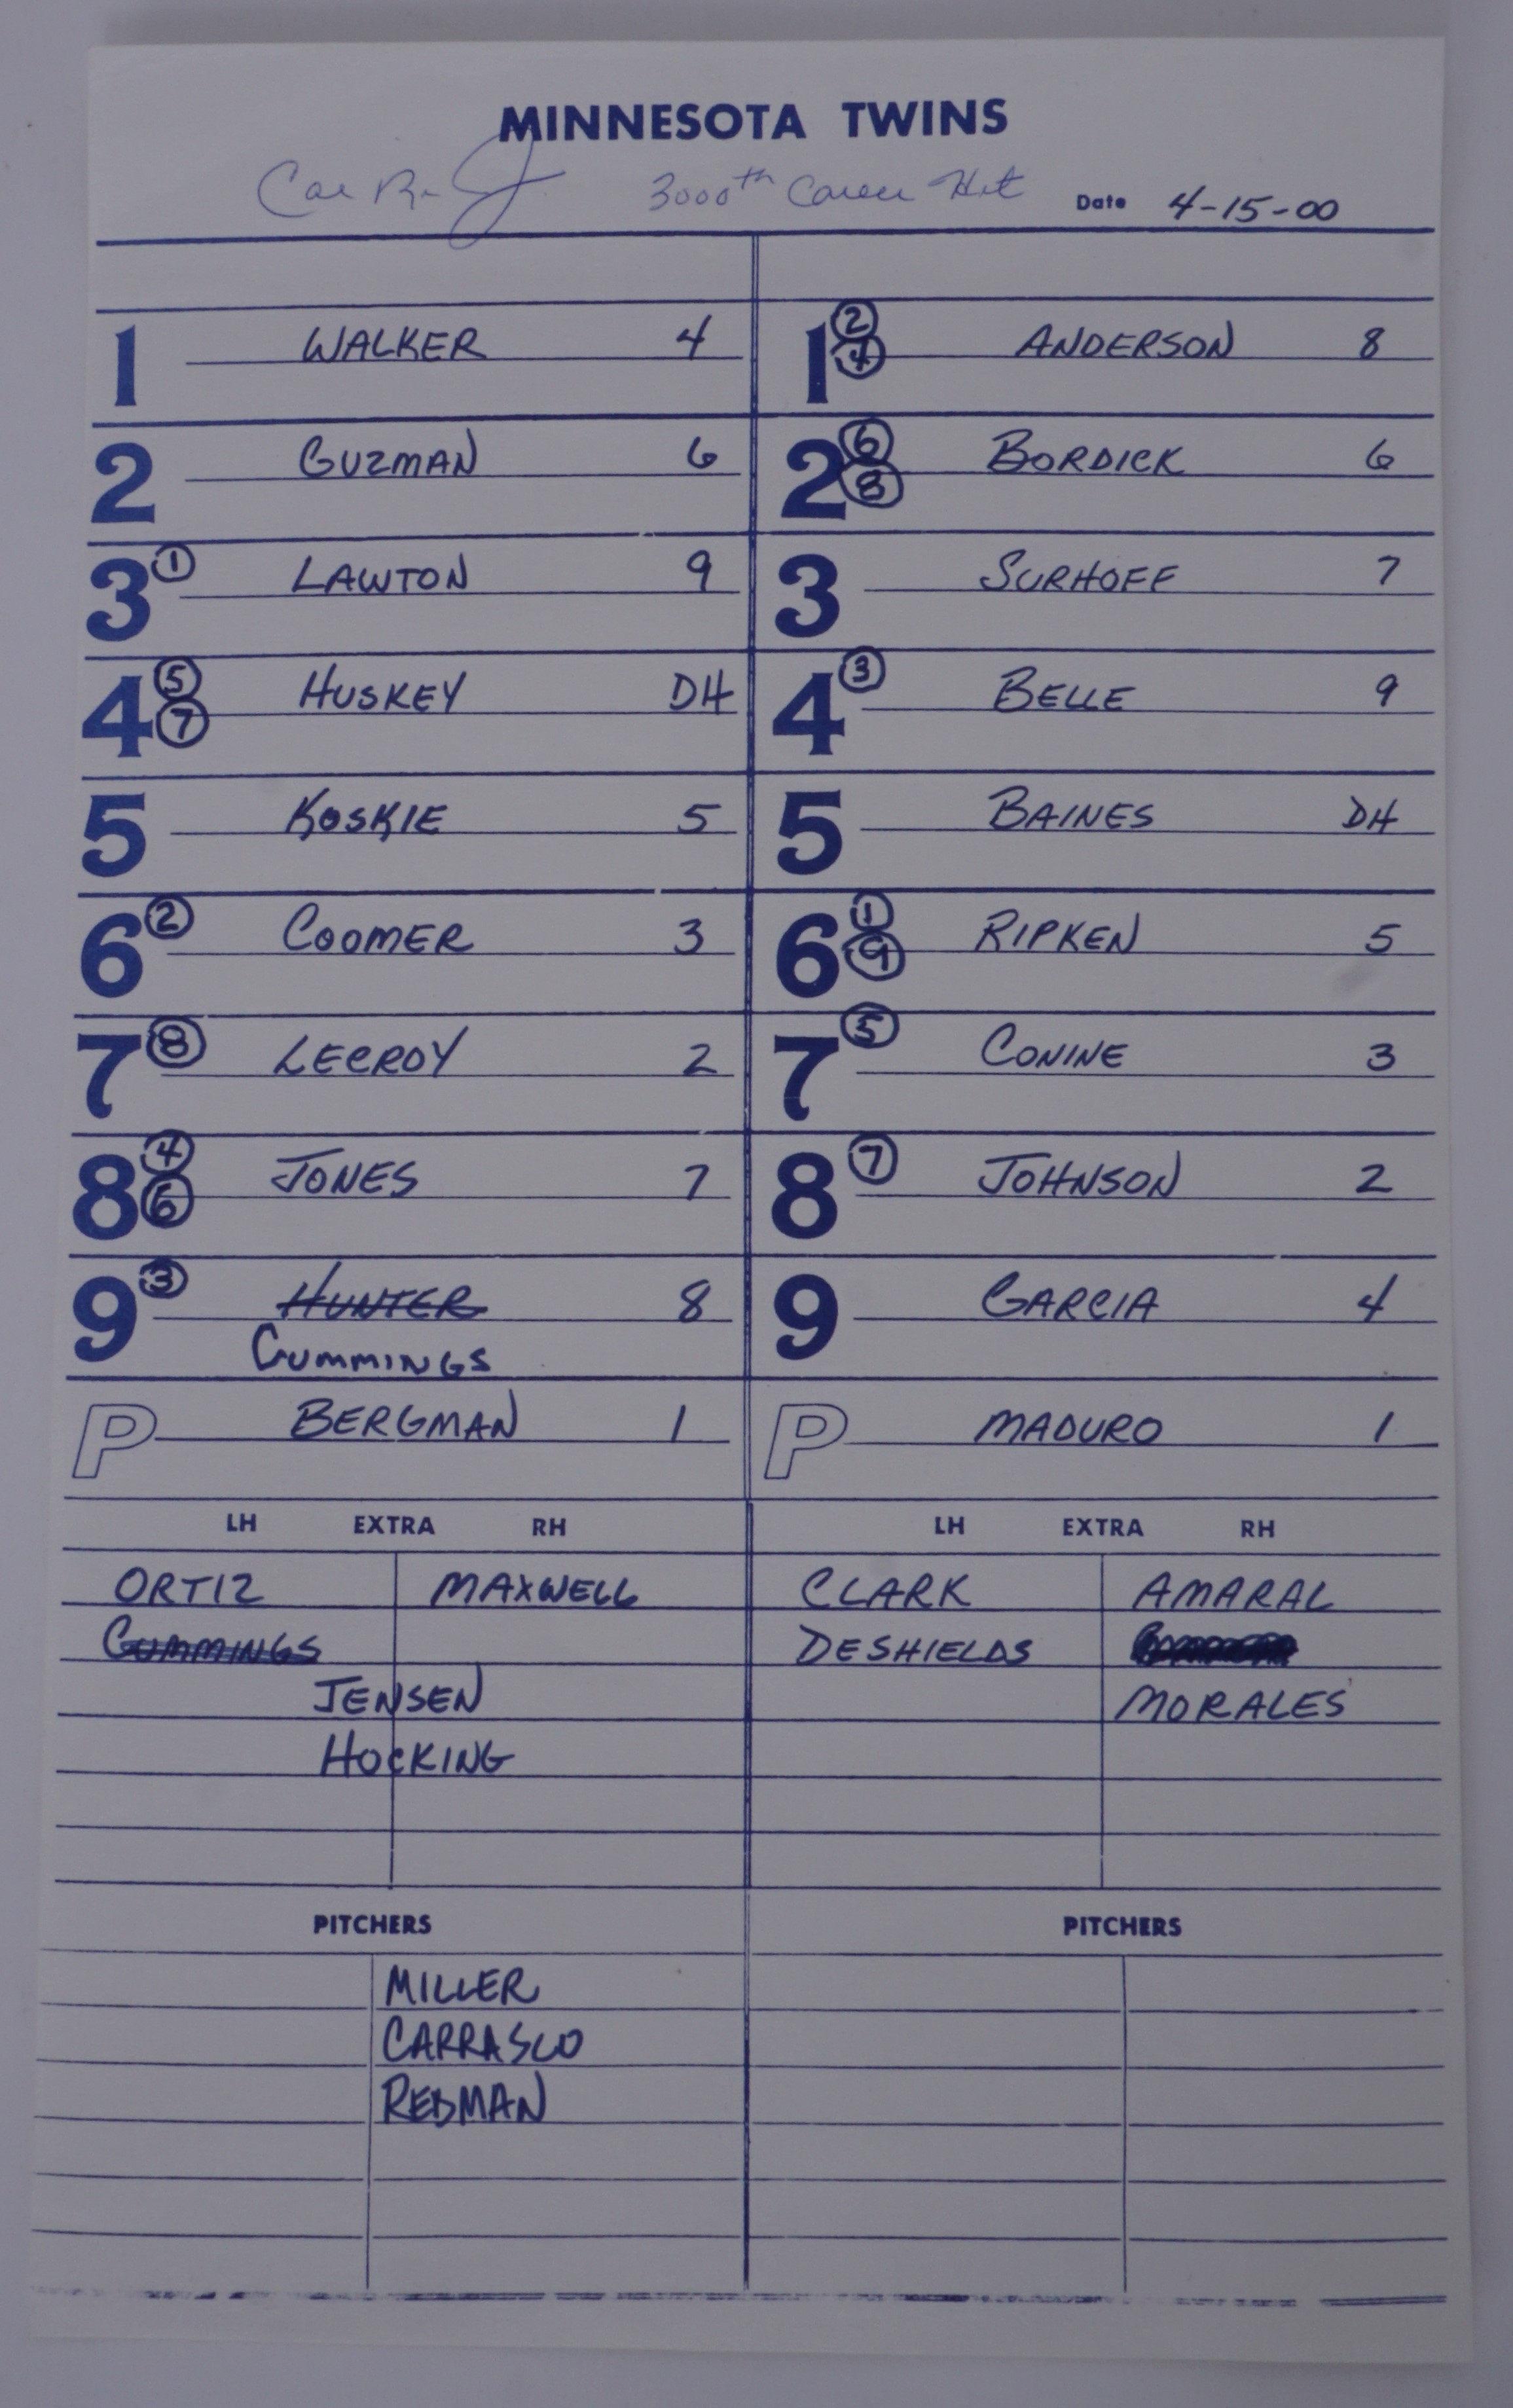 MINNESOTA TWINS
Cal Ripken Jr 3000th Career Hit Date 4-15-00
1 WALKER 4
2 GUZMAN 6
3 ① LAWTON 9
4 ⑤ ⑦ HUSKEY DH
5 KOSKIE 5
6 ② COOMER 3
7 ⑧ LECROY 2
8 ④ ⑥ JONES 7
9 ③ HUNTER 8
CUMMINGS
P BERGMAN 1
LH EXTRA RH
ORTIZ MAXWELL
CUMMINGS
JENSEN
HOCKING
PITCHERS
MILLER
CARRASCO
REDMAN
1 ② ④ ANDERSON 8
2 ⑥ ⑧ BORDICK 6
3 SURHOFF 7
4 ③ BELLE 9
5 BAINES DH
6 ① ⑨ RIPKEN 5
7 ⑤ CONINE 3
8 ⑦ JOHNSON 2
9 GARCIA 4
P MADURO 1
LH EXTRA RH
CLARK AMARAL
DESHIELDS
MORALES
PITCHERS